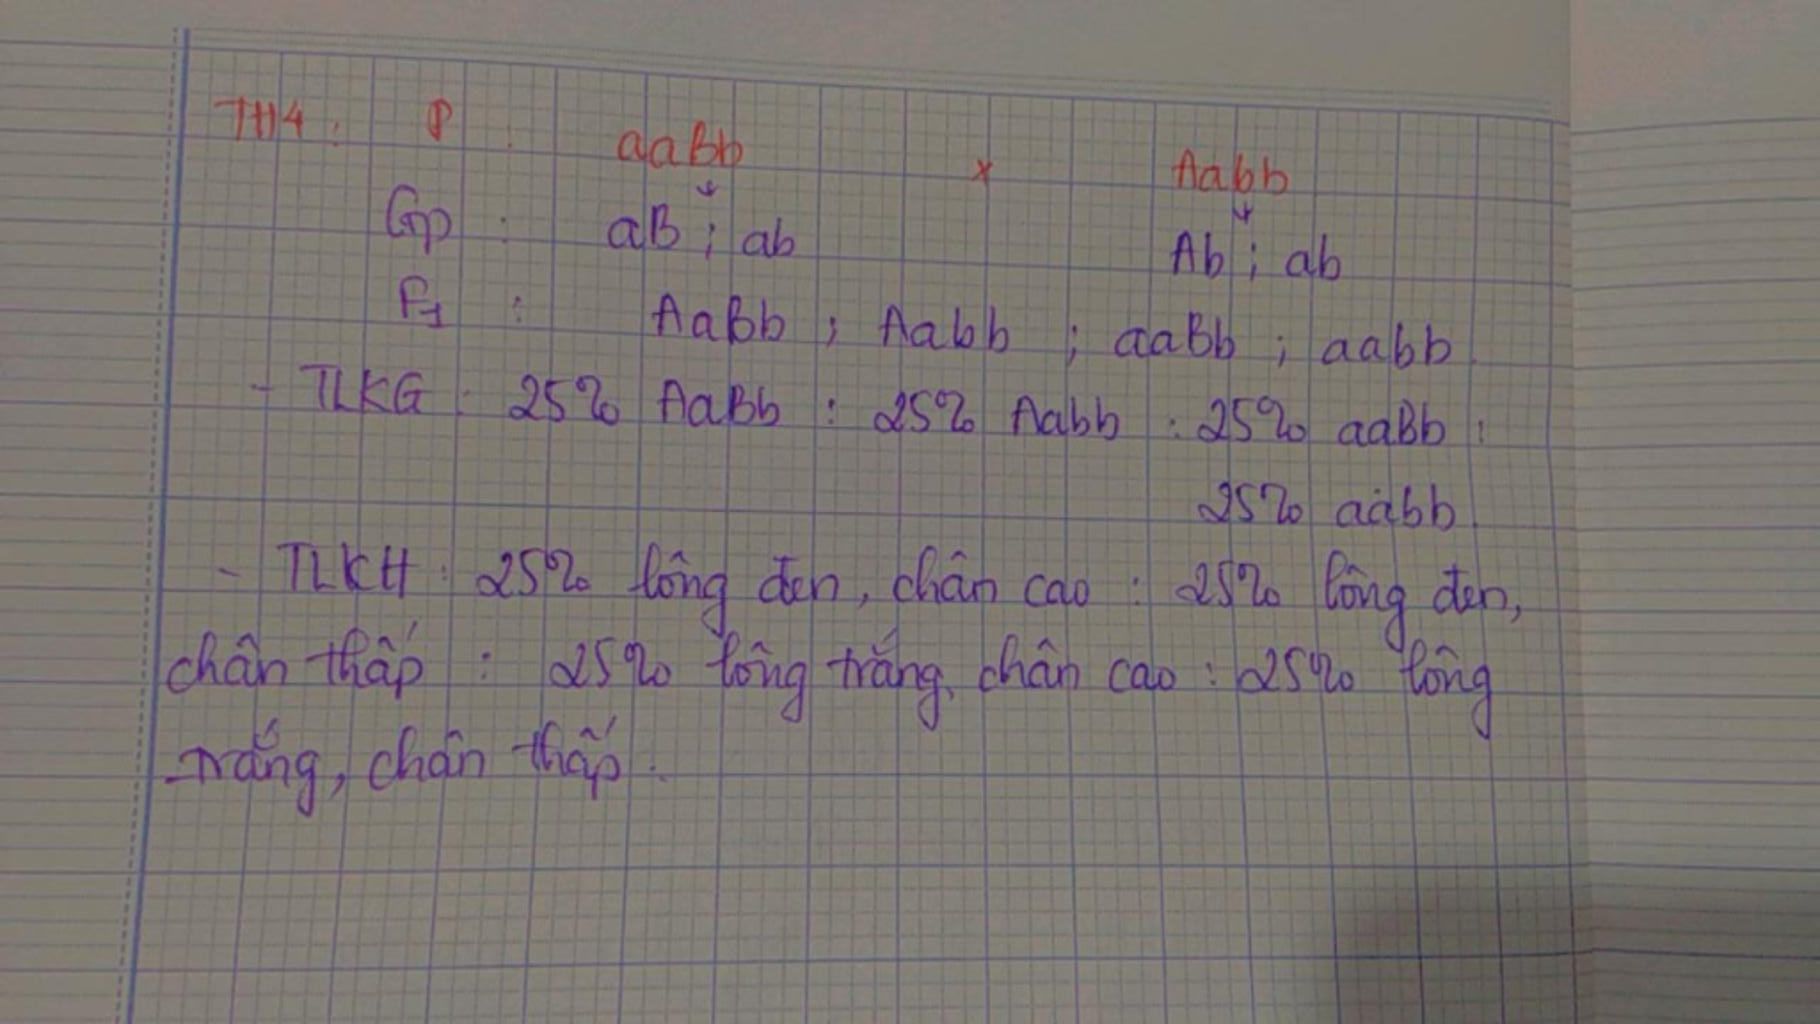 TH4 : P : aaBb x Aabb
Gp : aB ; ab Ab ; ab
F1 : AaBb ; Aabb ; aaBb ; aabb
- TLKG : 25% AaBb : 25% Aabb : 25% aaBb :
25% aabb
- TLKH : 25% lông đen, chân cao : 25% lông đen,
chân thấp : 25% lông trắng, chân cao : 25% lông
trắng, chân thấp.